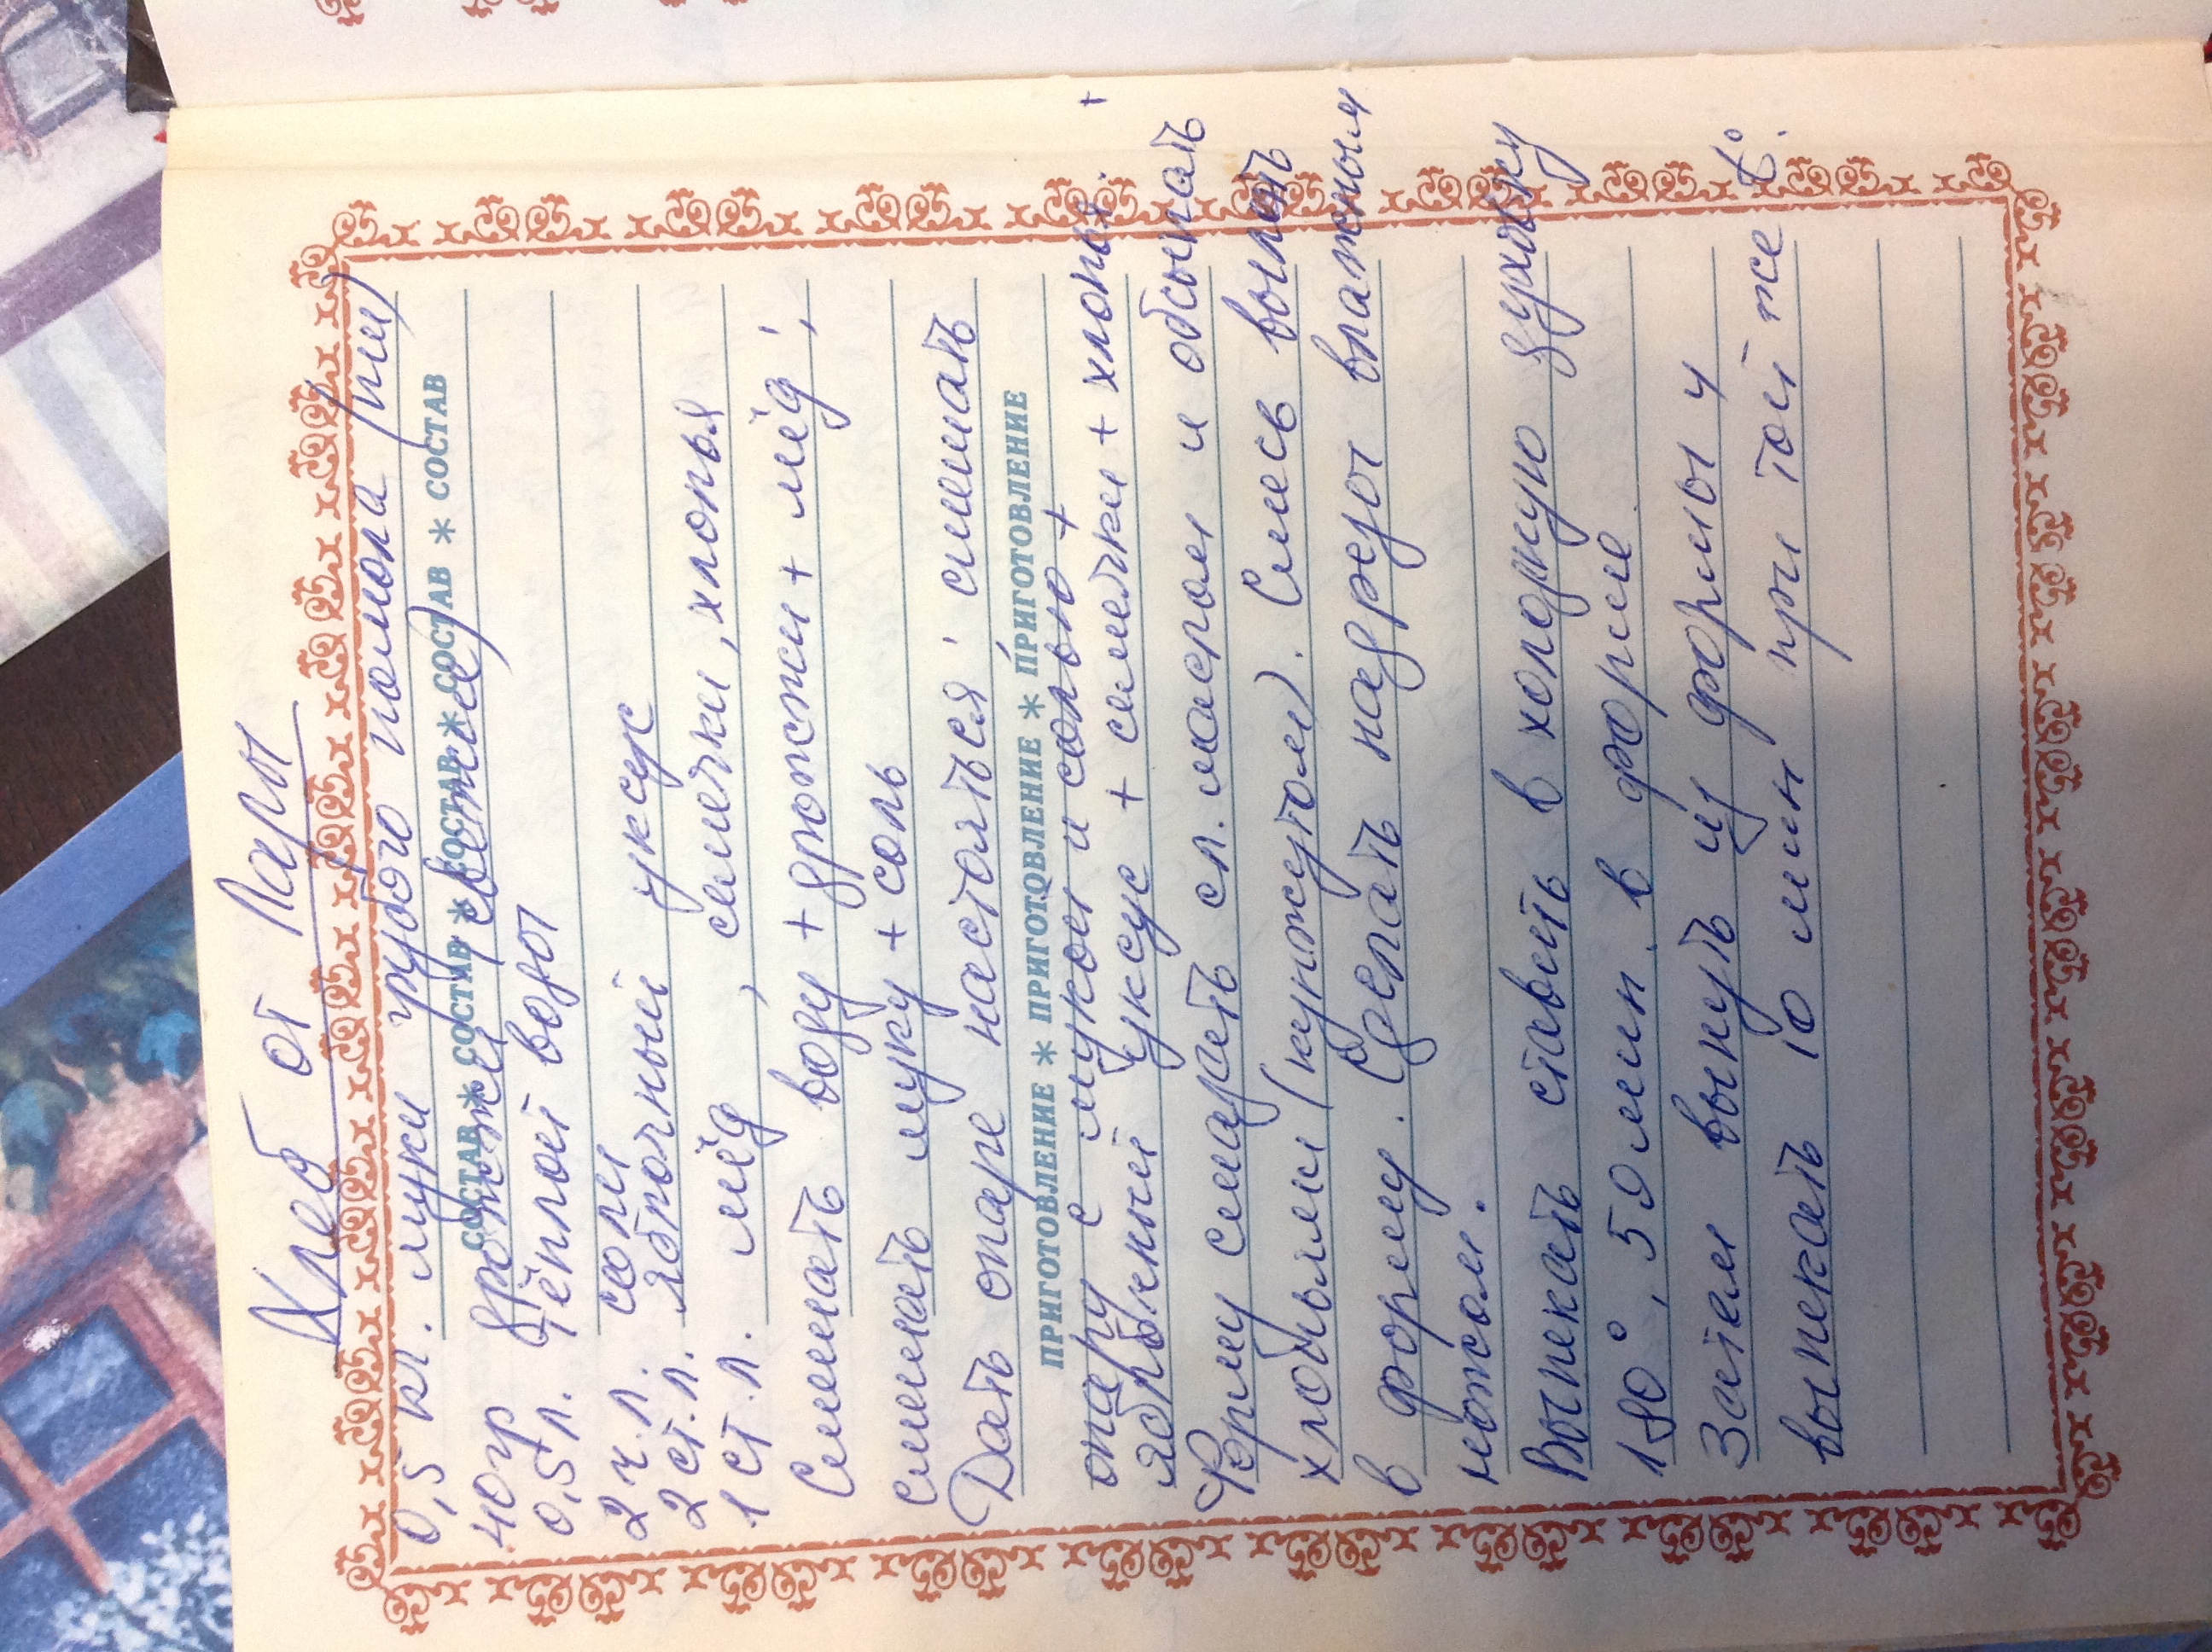 Хлеб от Лары
0,5 кг. муки грубого помола (пш)
СОСТАВ * СОСТАВ * СОСТАВ * СОСТАВ * СОСТАВ * СОСТАВ
40 гр дрожжей (свежие)
0,5 л. тёплой воды
2 ч.л. соли
2 ст.л. яблочный уксус
1 ст.л. мёд, семечки, хлопья
Смешать воду + дрожжи + мёд;
Смешать муку + соль
Дать опаре настояться, смешать
ПРИГОТОВЛЕНИЕ * ПРИГОТОВЛЕНИЕ * ПРИГОТОВЛЕНИЕ
опару с мукой и солью +
яблочный уксус + семечки + хлопья. +
Форму смазать сл. маслом и обсыпать
хлопьями (кунжутом). Смесь вылить
в форму. Сделать надрезы влажным
ножом.
Выпекать ставить в холодную духовку
180°, 50 мин. в форме.
Затем вынуть из формы и
выпекать 10 мин при той же t°.